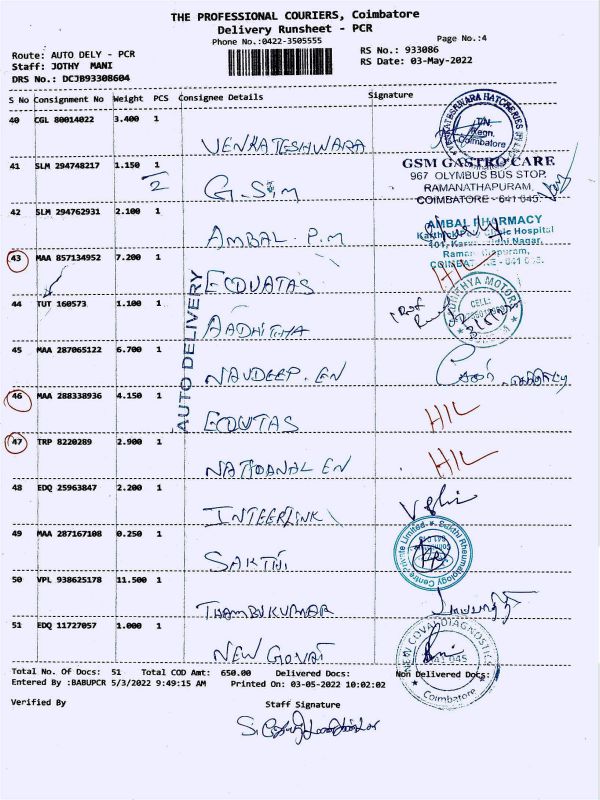 THE PROFESSIONAL COURIERS, Coimbatore
Delivery Runsheet - PCR
Phone No.:0422-3505555
Page No.:4
Route: AUTO DELY - PCR
RS No.: 933086
Staff: JOTHY MANI
RS Date: 03-May-2022
DRS No.: DCJB93308604
S No Consignment No Weight PCS Consignee Details Signature
40 CGL 80014022 3.400 1
VENKATESHWARA
VENKATESHWARA HATCHERIES
Coimbatore
41 SLM 294748217 1.150 1
2
G.S.M
GSM GASTRO CARE
967 OLYMBUS BUS STOP.
RAMANATHAPURAM,
COIMBATORE - 641 045.
42 SLM 294762931 2.100 1
AMBAL P.M
AMBAL PHARMACY
Hospital
Nagar,
43 MAA 857134952 7.200 1
ECOVATAS
H/L
AUTO DELIVERY
44 TUT 160573 1.100 1
AADHITHA
MOTORS
CELL:
45 MAA 287065122 6.700 1
NAVDEEP.EN
46 MAA 288338936 4.150 1
ECOUTAS
H/L
47 TRP 8220289 2.900 1
NATOANAL EN
H/L
48 EDQ 25963847 2.200 1
INTEERLINK
49 MAA 287167108 0.250 1
SAKTHI
Sakthi Rheumatology Centre Private Limited
50 VPL 938625178 11.500 1
THAMBUKUMAR
51 EDQ 11727057 1.000 1
NEW GOVAI
NEW COVAI DIAGNOSTICS
641 045
Coimbatore
Total No. Of Docs: 51 Total COD Amt: 650.00 Delivered Docs: Non Delivered Docs:
Entered By :BABUPCR 5/3/2022 9:49:15 AM Printed On: 03-05-2022 10:02:02
Verified By Staff Signature